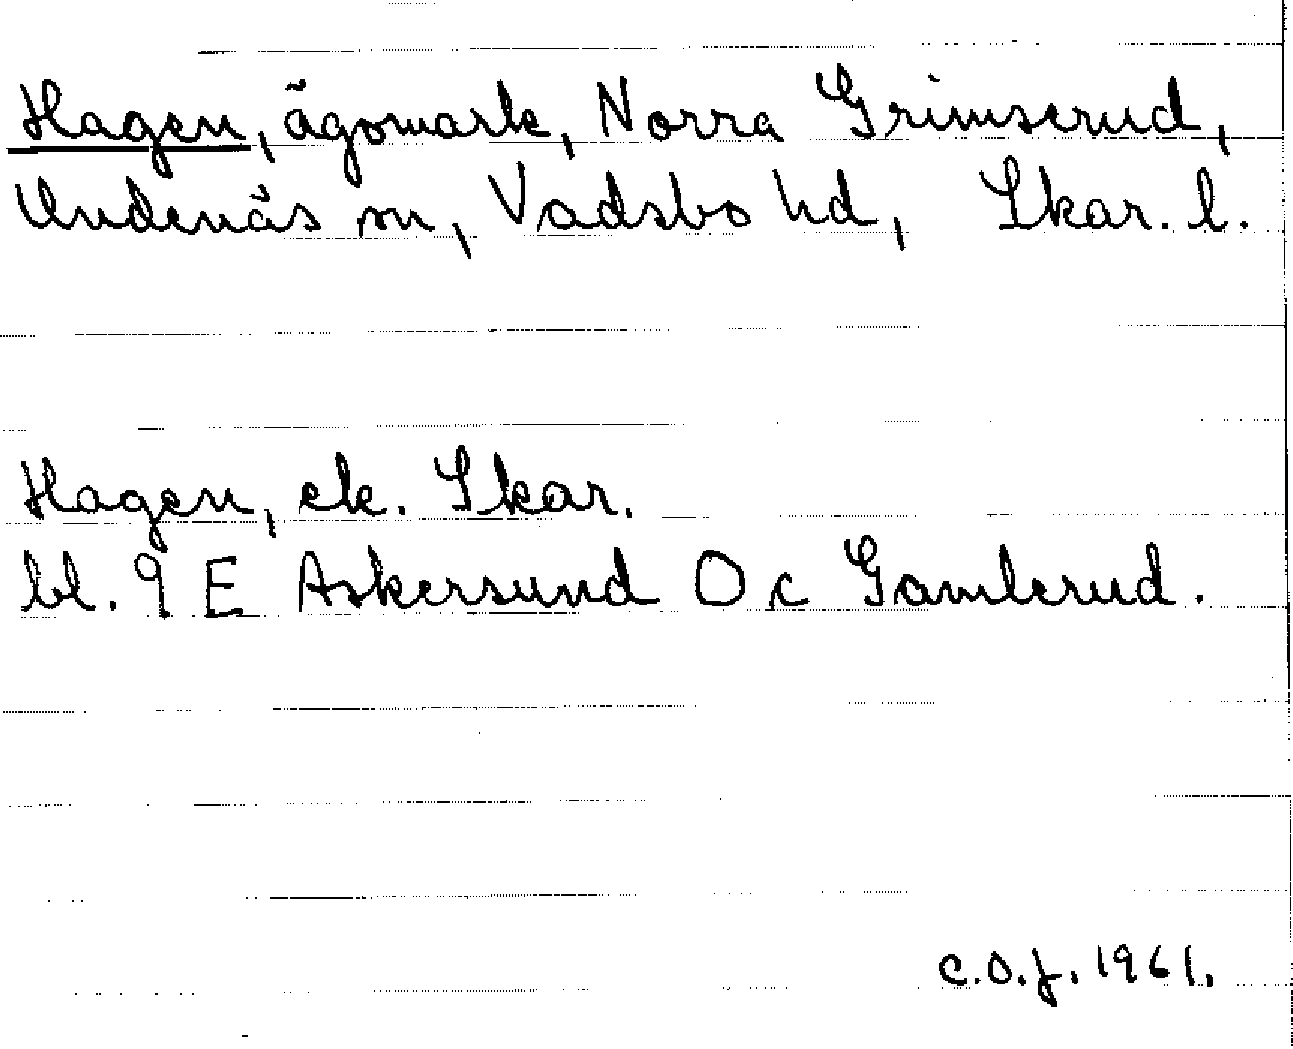 Hagen, ägomark, Norra Grimserud,
Undenäs sn, Vadsbo hd, Skar. l.
Hagen, ek. Skar.
bl. 9 E Askersund O c Gamlerud.
C.O.J. 1961.